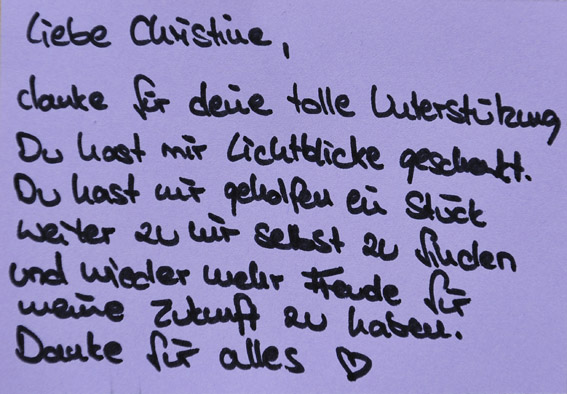 Liebe Christine,
danke für deine tolle Unterstützung
Du hast mir Lichtblicke geschenkt.
Du hast mir geholfen ein Stück
weiter zu mir selbst zu finden
und wieder mehr Freude für
meine Zukunft zu haben.
Danke für alles ♡